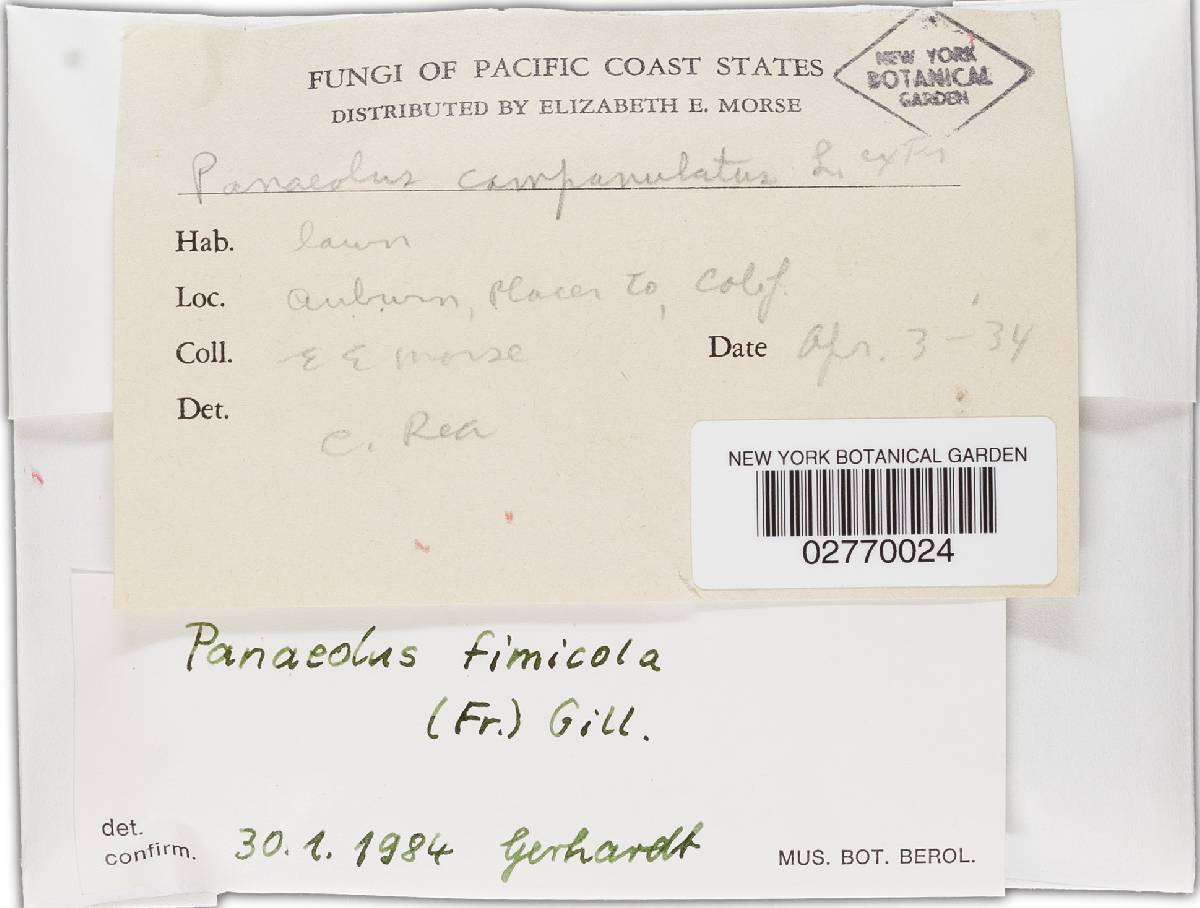 FUNGI OF PACIFIC COAST STATES
DISTRIBUTED BY ELIZABETH E. MORSE
NEW YORK
BOTANICAL
GARDEN
Panaeolus campanulatus L. ex Fr
Hab. lawn
Loc. Auburn, Placer Co, Calif.
Coll. E E Morse Date Apr. 3-34
Det. C. Rea
NEW YORK BOTANICAL GARDEN
02770024
Panaeolus fimicola
(Fr.) Gill.
det.
confirm. 30.1.1984 Gerhardt MUS. BOT. BEROL.